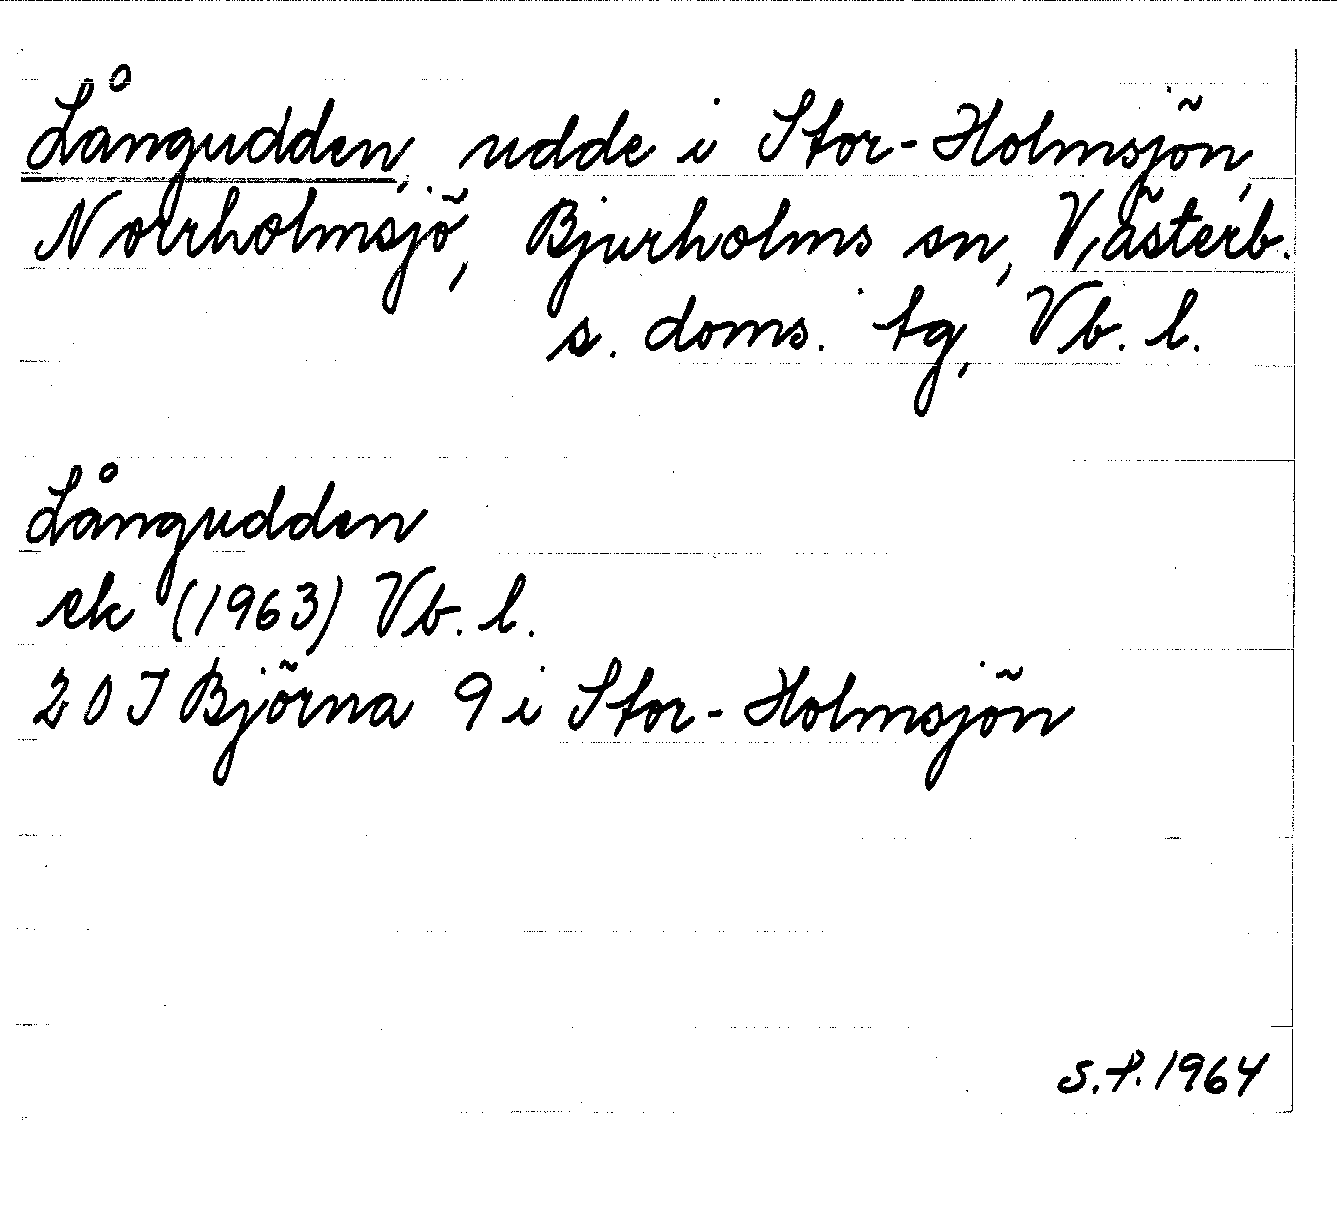 Långudden, udde i Stor-Holmsjön,
Norrholmsjö, Bjurholms sn, Västerb.
s. doms. tg, Vb. l.
Långudden
ek (1963) Vb. l.
20 J Björna 9 i Stor-Holmsjön
S.P. 1964